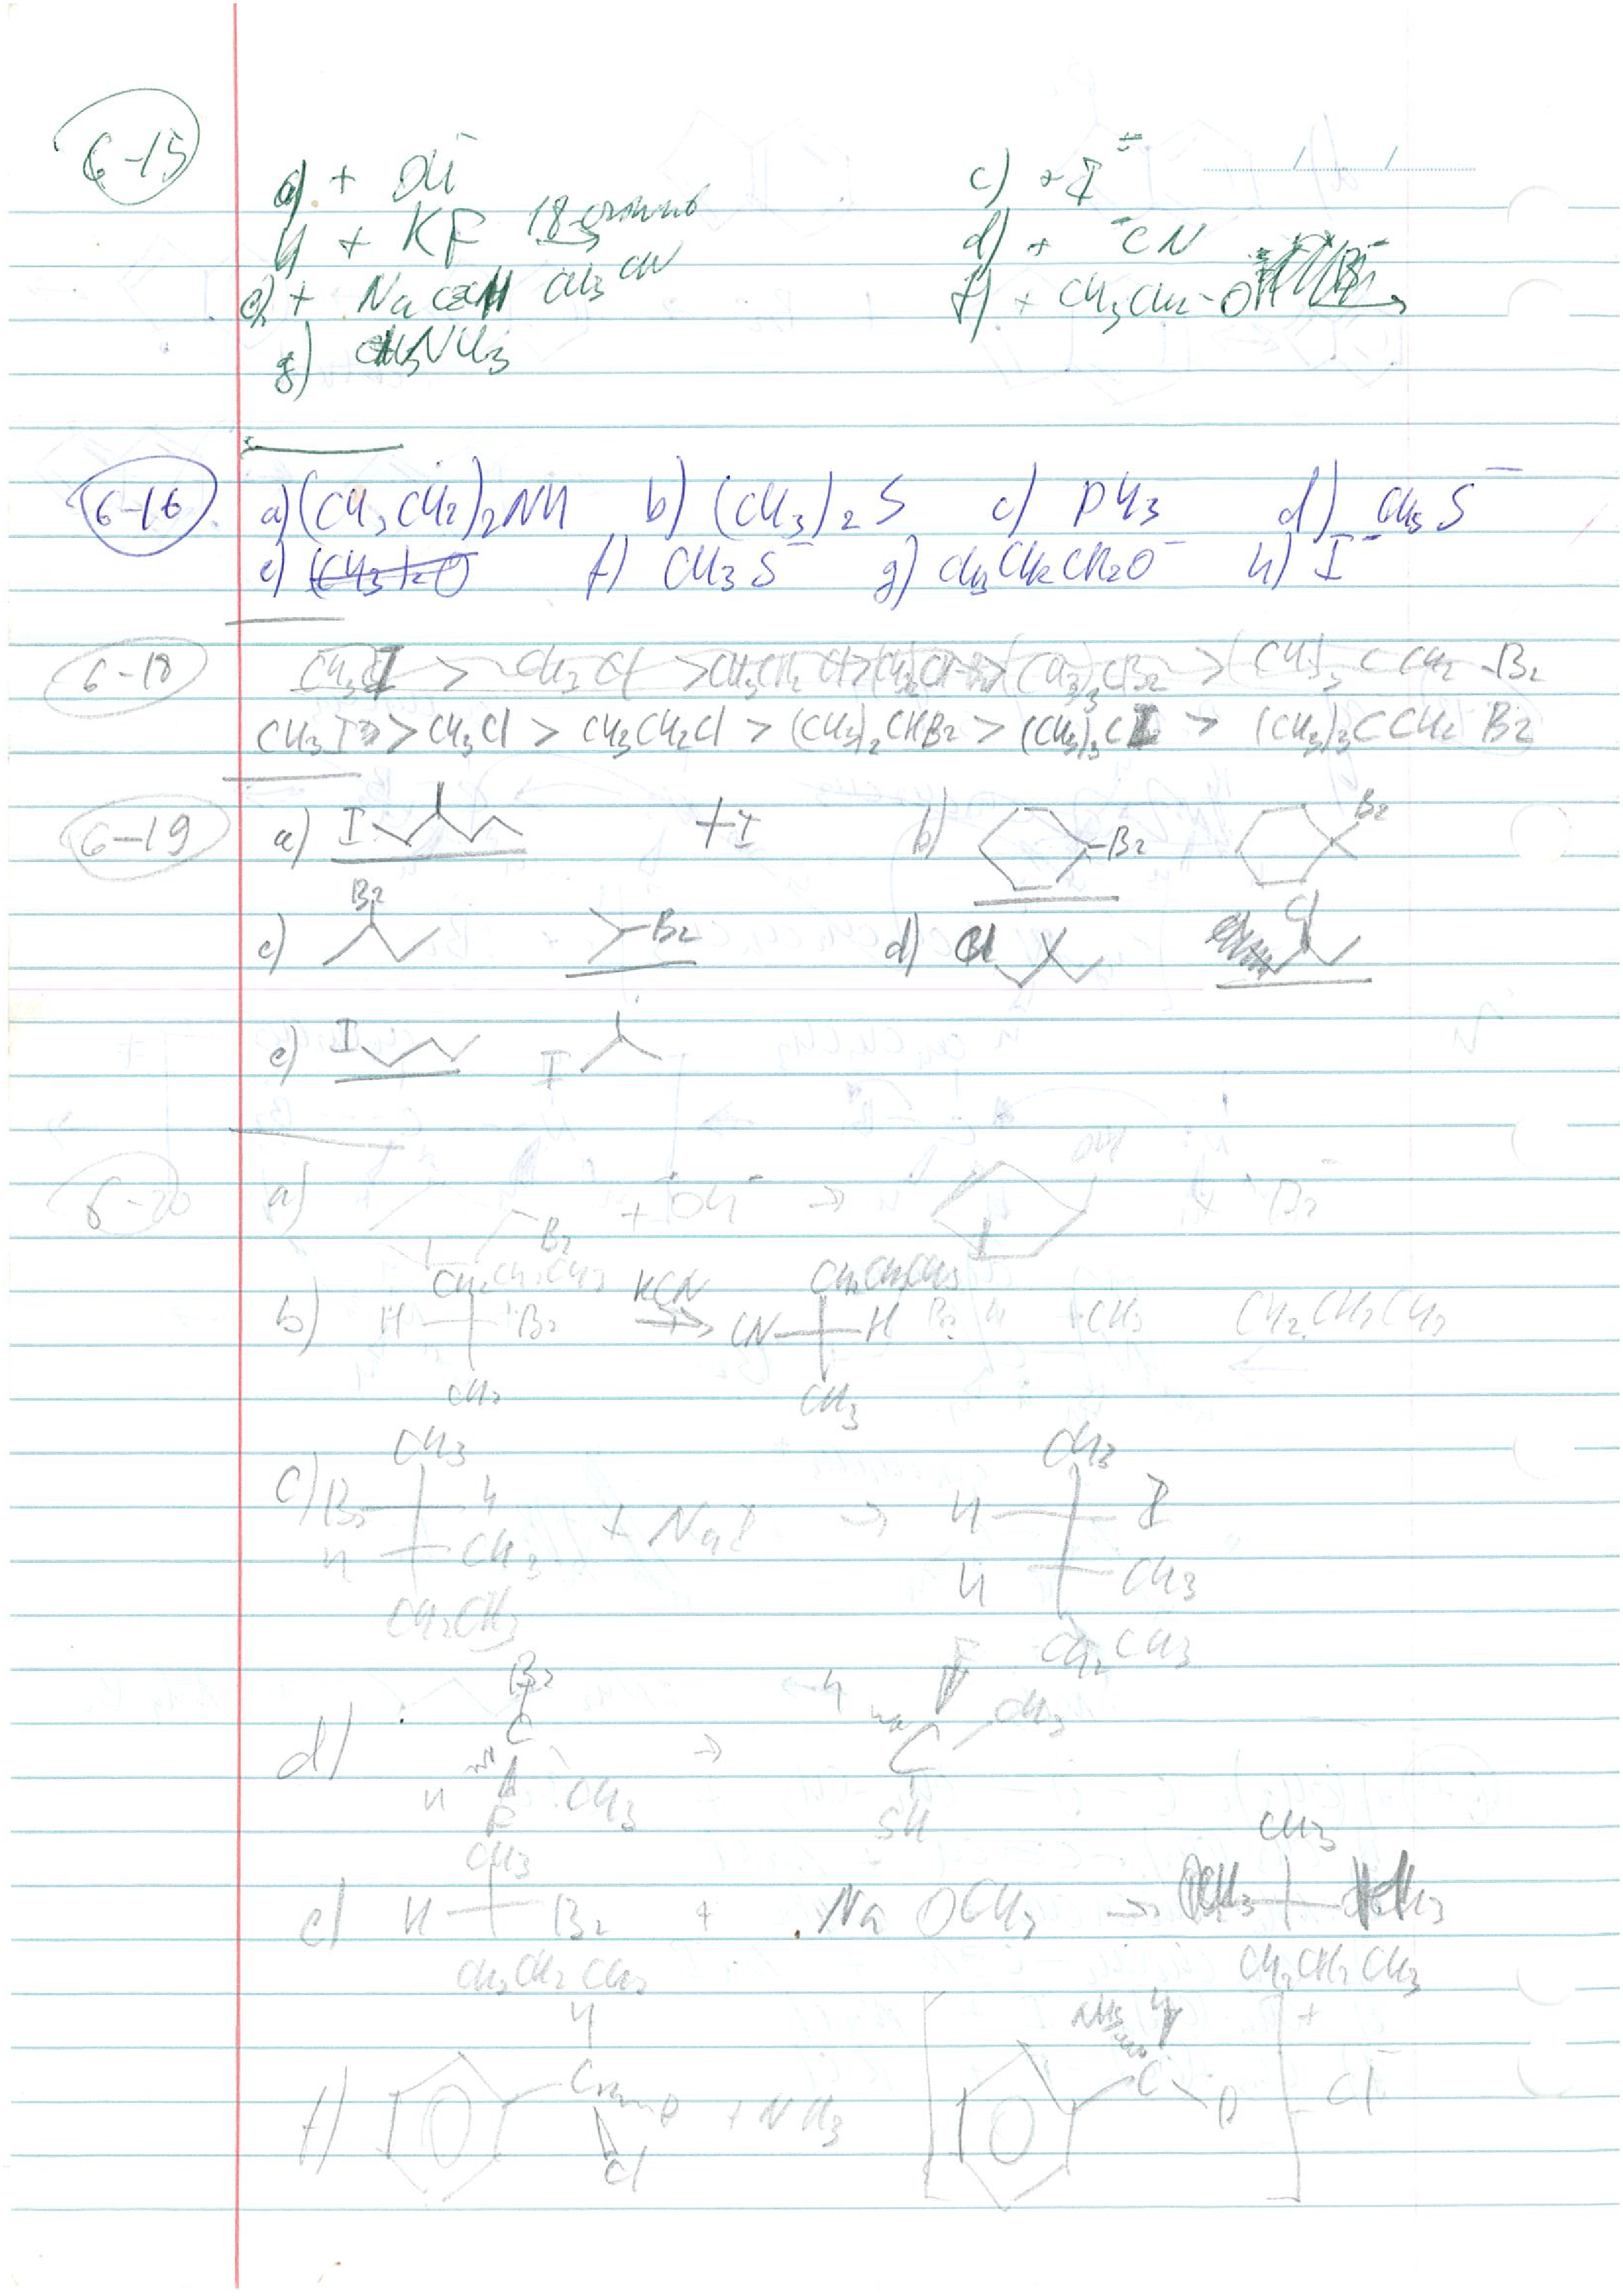 6-15
a) + OH⁻ c) + I⁻
b) + KF 18-crown-6 CH3CN d) + ⁻CN
e) + Na f) + CH3CH2-OH
g) NH3
6-16 a) (CH3CH2)2NH b) (CH3)2S c) PH3 d) CH3S⁻
e) (CH3)2O f) CH3S⁻ g) CH3CH2CH2O⁻ h) I⁻
6-18 CH3I > CH3Cl > CH3CH2Cl > > (CH3)3CBr > (CH3)3CCH2-Br
CH3I > CH3Cl > CH3CH2Cl > (CH3)2CHBr > (CH3)3CI > (CH3)3CCH2Br
6-19 a) I I b) Br Br
c) Br Br d) Cl Cl
e) I I
6-20 a) Br + OH⁻ → OH + Br⁻
b) CH2CH2CH3 H Br CH3 KCN → CH2CH2CH3 CN H CH3 Br H CH3 CH2CH2CH3
c) CH3 Br H H CH3 CH2CH3 + NaI → CH3 H I H CH3 CH2CH3
d) Br C H F CH3 → H F C CH3 SH
e) CH3 H Br CH2CH2CH3 + NaOCH3 → CH3 CH2CH2CH3
f) H C D Cl + NH3 [NH3 H C D]⁺ Cl⁻